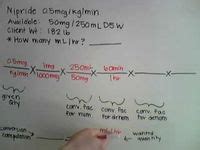 Nipride 0.5mg/kg/min
Available: 50mg/250mL D5W
Client Wt: 182 lb
* How many mL/hr? ____
0.5mg/kg/min X 1mg/1000mg X 250ml/50mg X 60min/1hr X — X —
given qty
conv. fac for num
conv. fac for denom
conv. fac for denom
conversion computation
mL/hr
wanted quantity